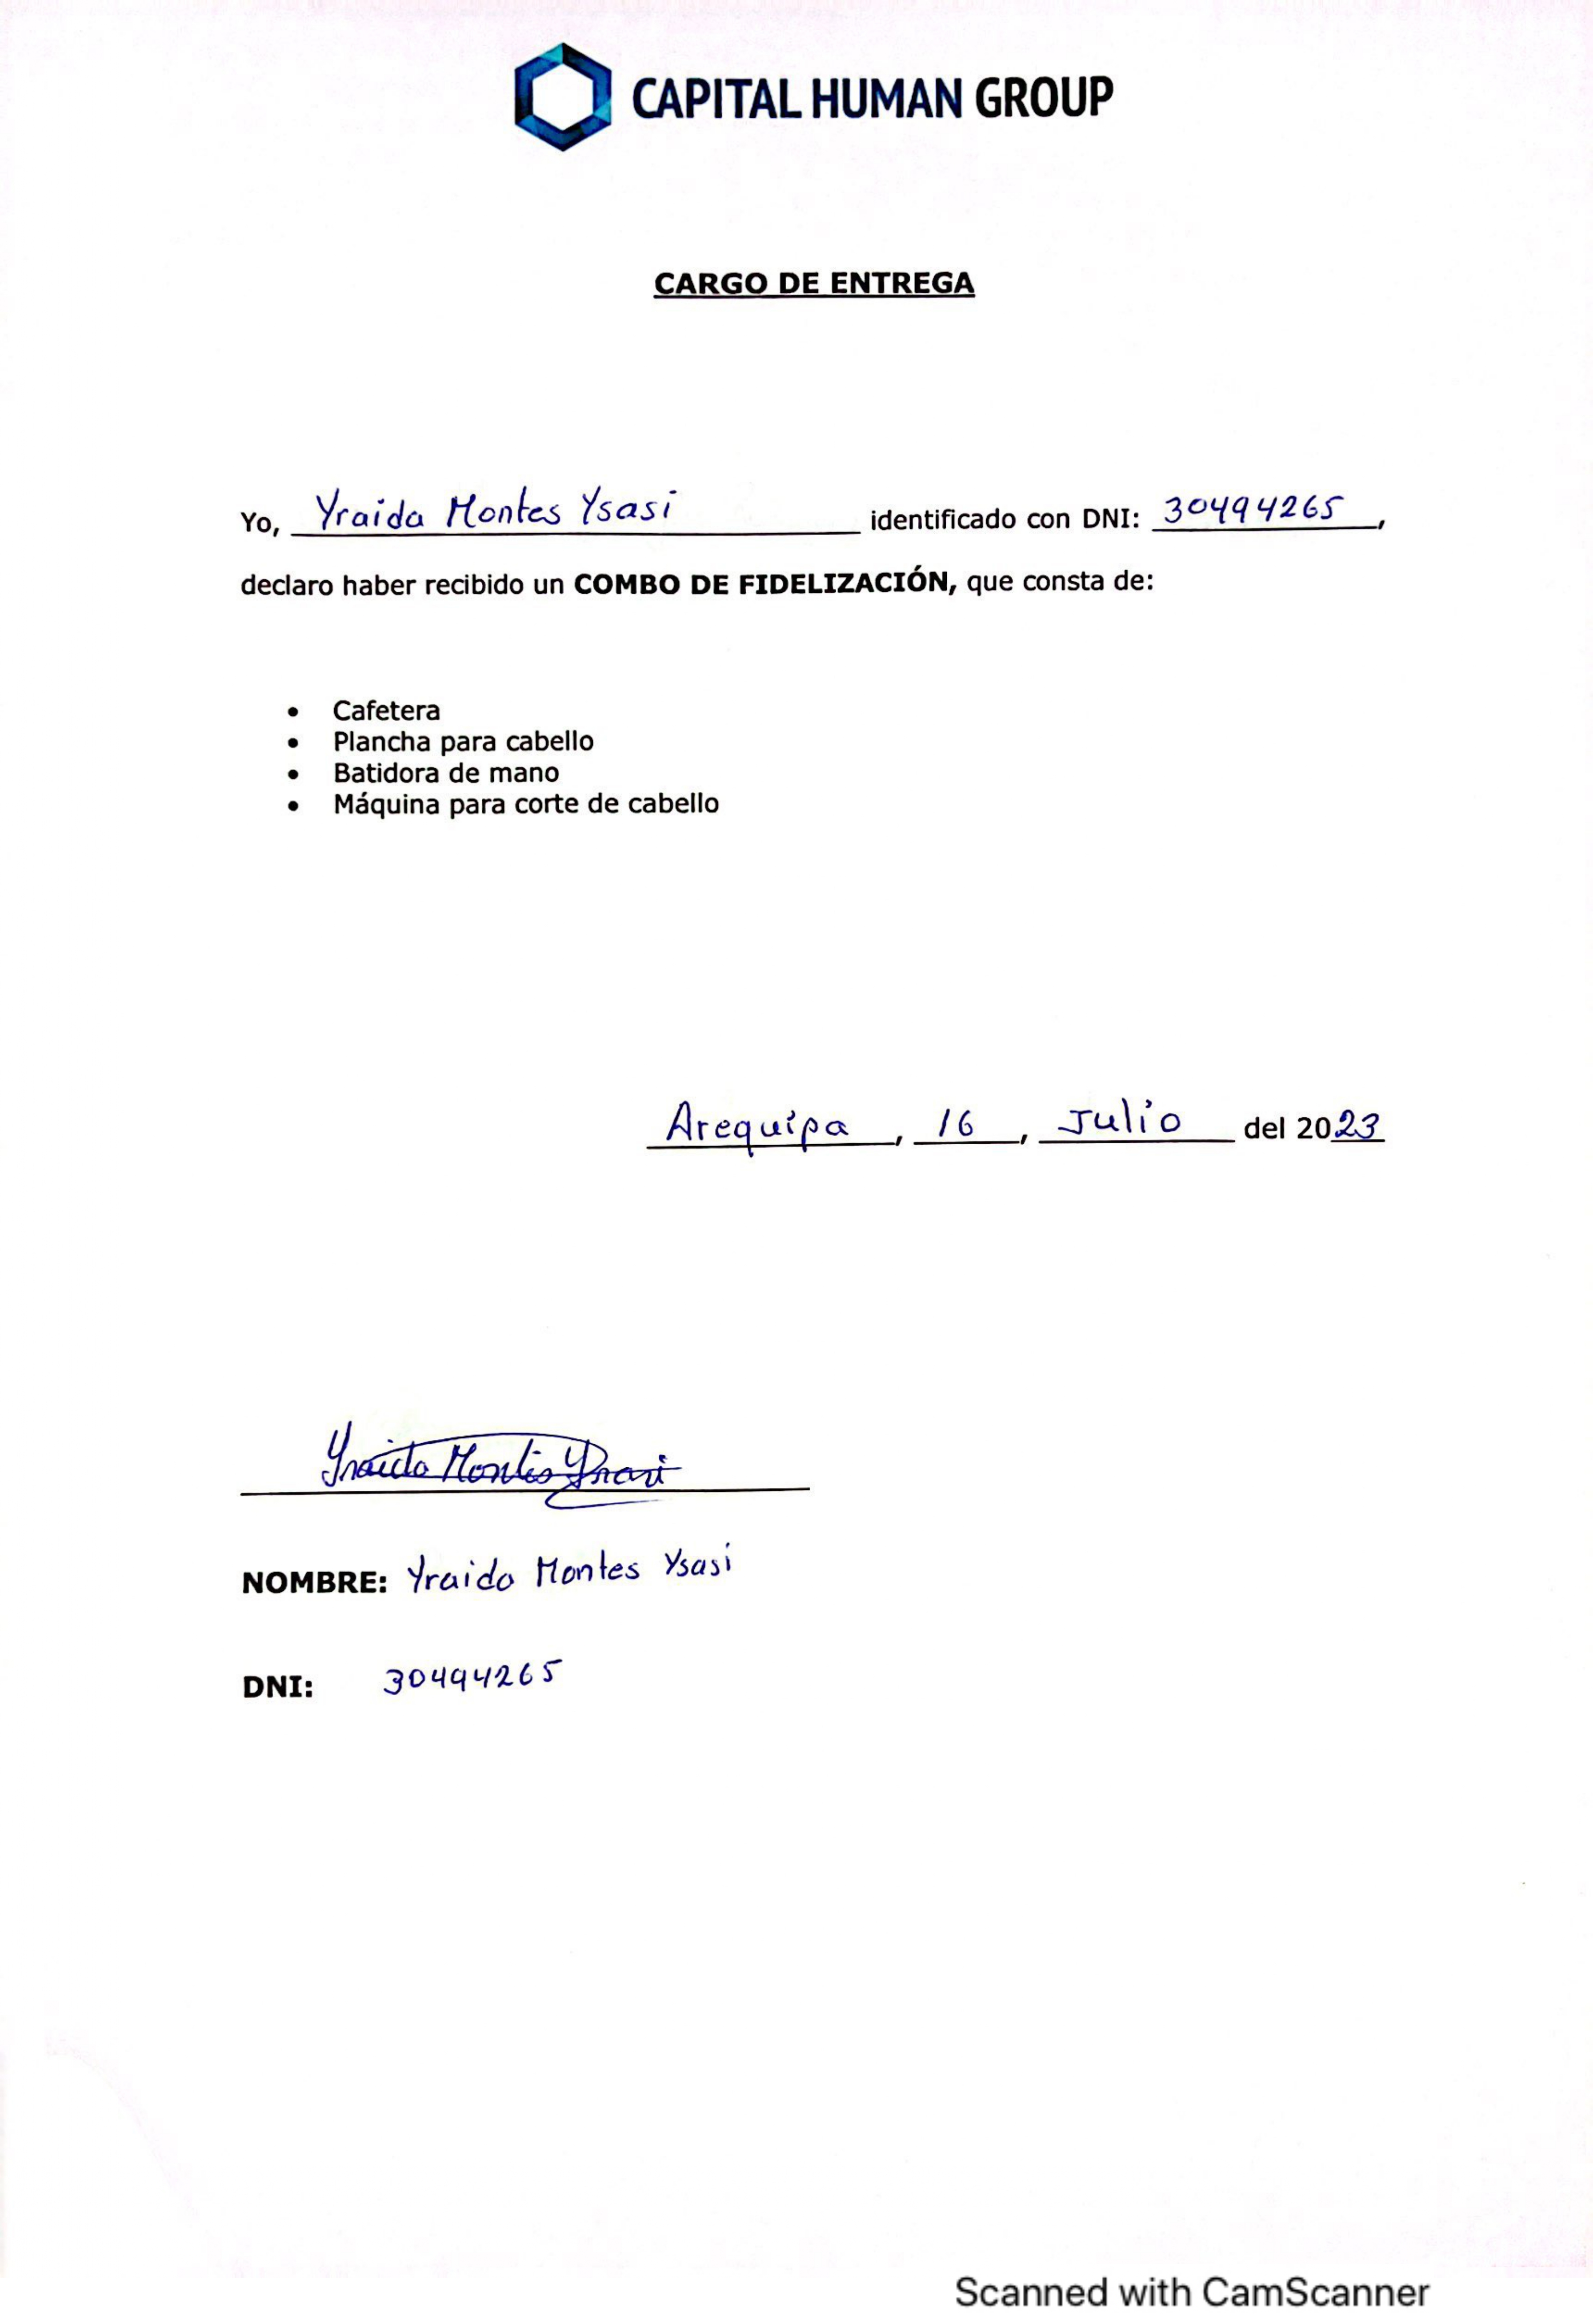 CAPITAL HUMAN GROUP
CARGO DE ENTREGA
Yo, Yraida Montes Ysasi identificado con DNI: 30494265,
declaro haber recibido un COMBO DE FIDELIZACIÓN, que consta de:
• Cafetera
• Plancha para cabello
• Batidora de mano
• Máquina para corte de cabello
Arequipa, 16, Julio del 2023
Yraida Montes Ysasi
NOMBRE: Yraida Montes Ysasi
DNI: 30494265
Scanned with CamScanner